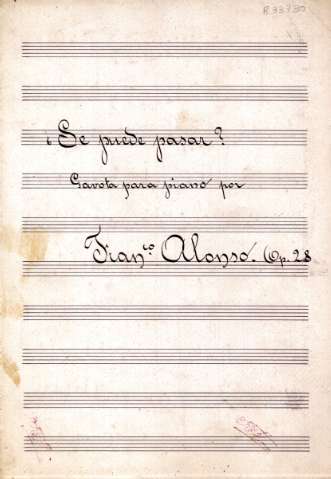 ¿Se puede pasar?
Gavota para piano por
Fran.co Alonso. Op. 28